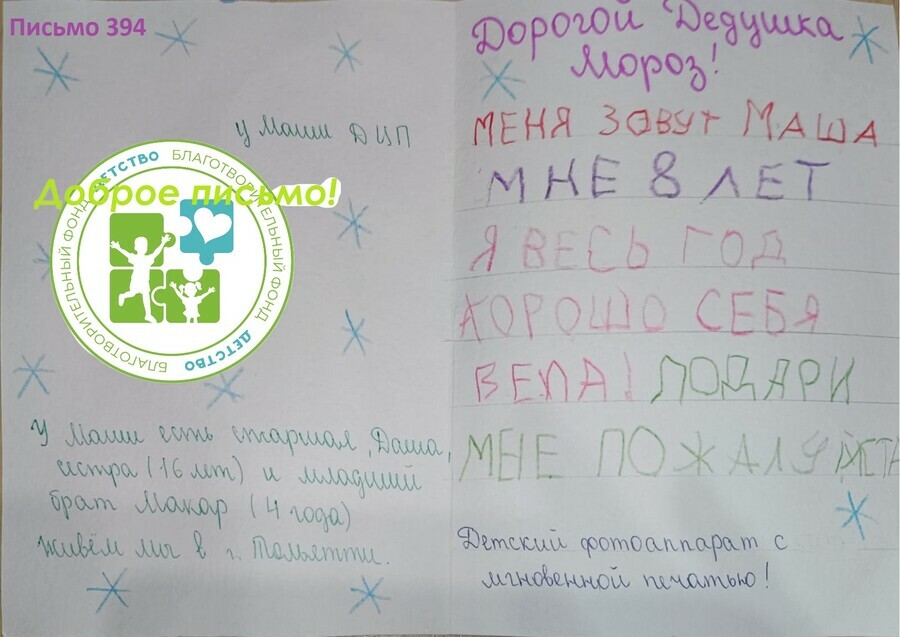 Письмо 394
у Маши ДЦП
Доброе письмо!
БЛАГОТВОРИТЕЛЬНЫЙ ФОНД ДЕТСТВО БЛАГОТВОРИТЕЛЬНЫЙ ФОНД ДЕТСТВО
У Маши есть старшая, Даша,
сестра (16 лет) и младший
брат Макар (4 года)
живём мы в г. Тольятти.
Дорогой Дедушка
Мороз!
МЕНЯ ЗОВУТ МАША
МНЕ 8 ЛЕТ
Я ВЕСЬ ГОД
ХОРОШО СЕБЯ
ВЕЛА! ПОДАРИ
МНЕ ПОЖАЛУЙСТА
Детский фотоаппарат с
мгновенной печатью!